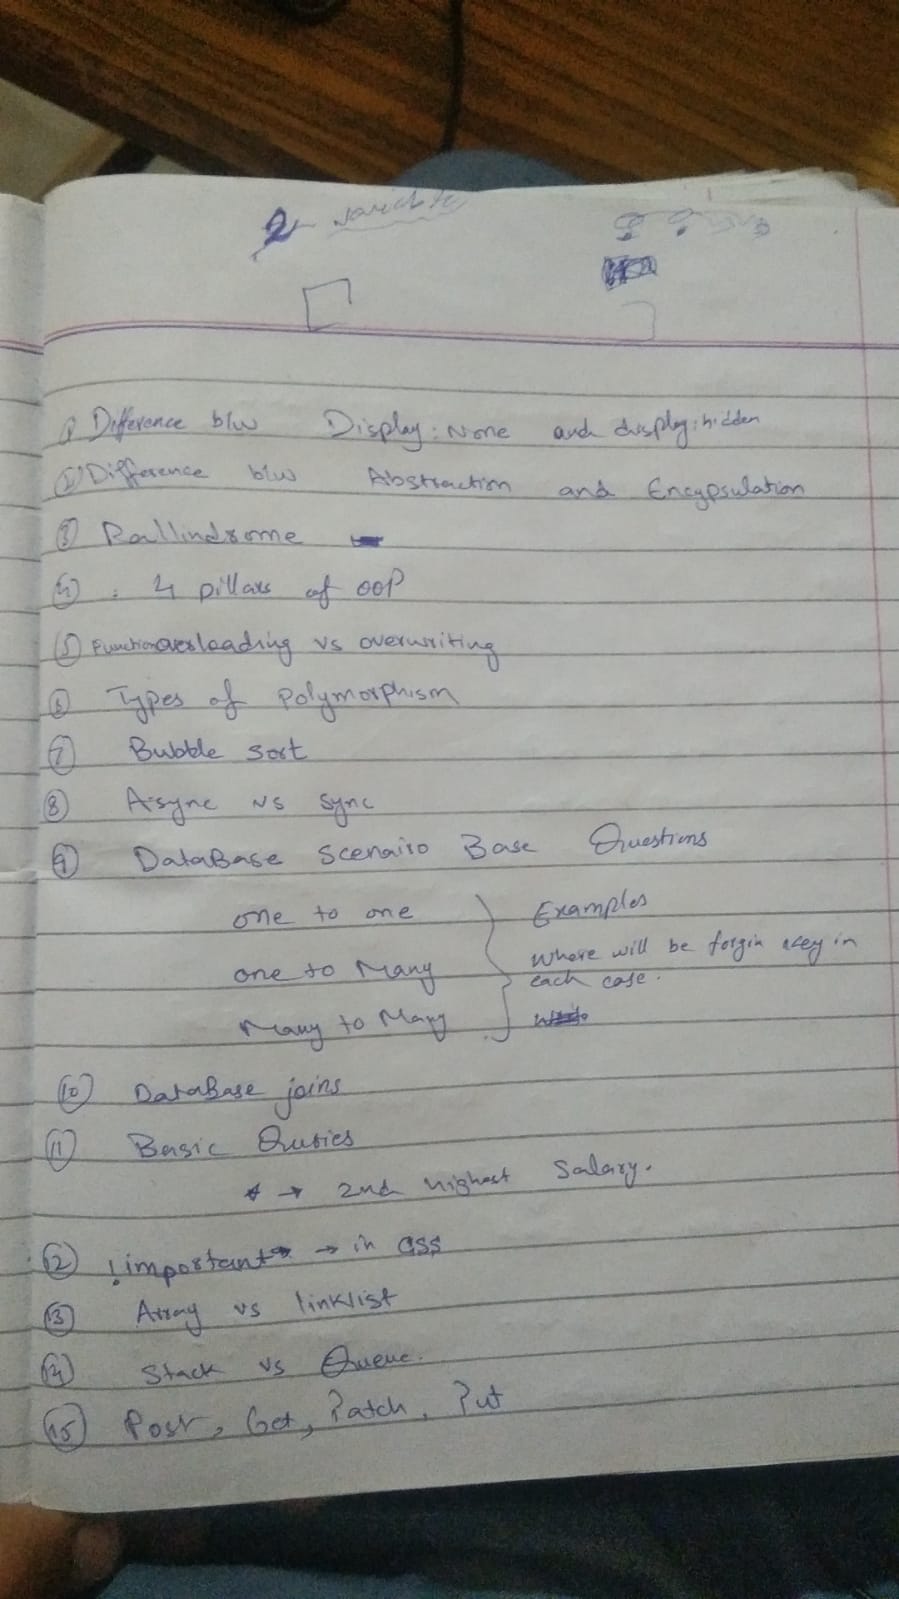 2 variable
① Difference b/w Display: None and display: hidden
② Difference b/w Abstraction and Encapsulation
③ Pallindrome
④ : 4 pillars of OOP
⑤ Function overloading vs overwriting
⑥ Types of Polymorphism
⑦ Bubble sort
⑧ Async vs sync
⑨ DataBase Scenairo Base Questions
one to one
one to Many
Many to Many
Examples
where will be forgin key in
each case.
⑩ DataBase joins
⑪ Basic Quries
* → 2nd highest Salary.
⑫ !important → in css
⑬ Array vs linklist
⑭ Stack vs Queue.
⑮ Post, Get, Patch, Put